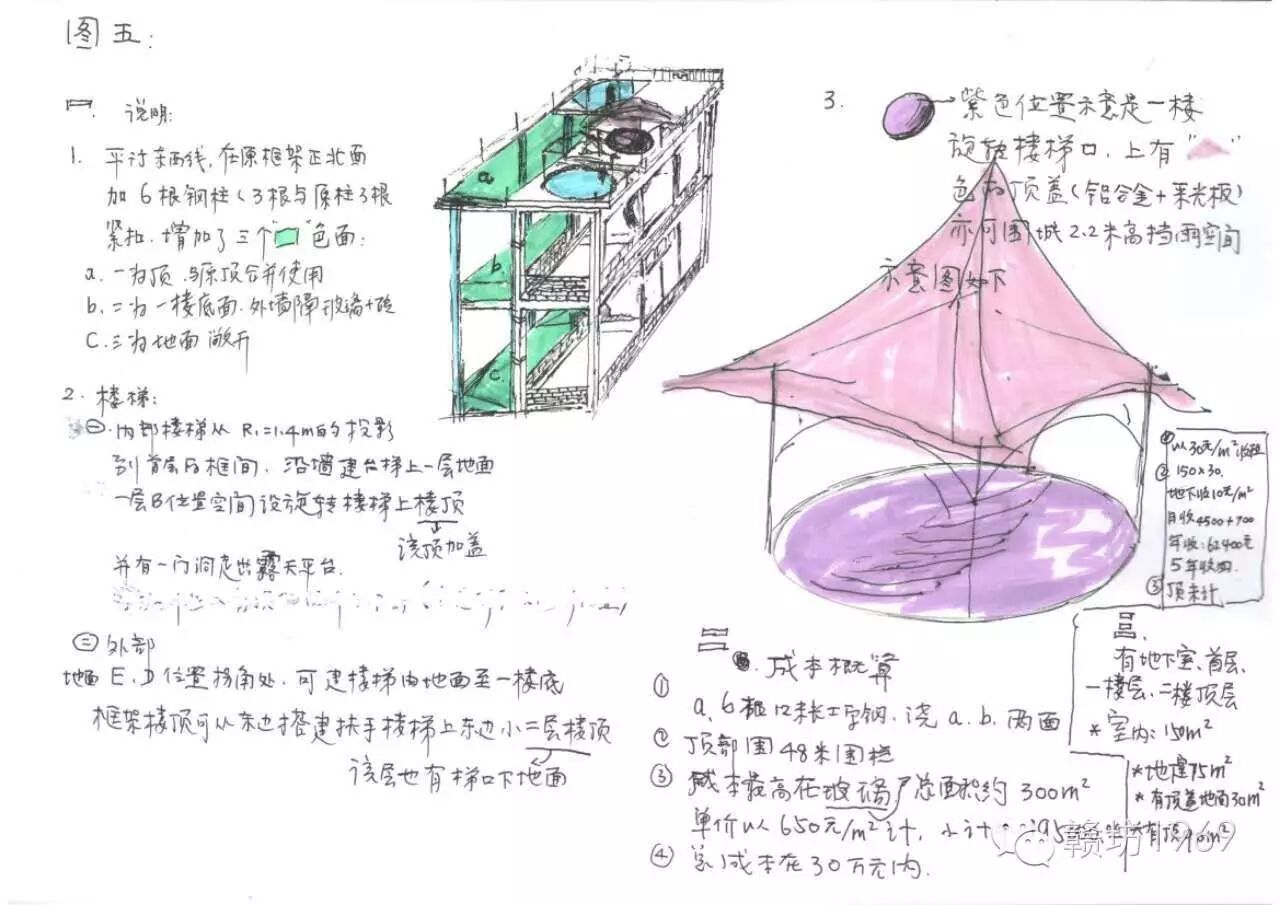 图五:
一. 说明:
1. 平行东西线,在原框架正北面
加6根钢柱(3根与原柱3根
紧扣.增加了三个"  "色面:
a. 一为顶.与原顶合并使用
b. 二为一楼底面.外墙障玻璃+砖
C. 三为地面敞开
2. 楼梯:
㊀.内部楼梯从R₁=1.4m的投影
到首层B框间,沿墙建台梯上一层地面
一层B位置空间设旋转楼梯上楼顶
该顶加盖
并有一门洞走出露天平台.
㊂外部
地面E、D位置拐角处,可建楼梯由地面至一楼底
框架楼顶可从东边搭建扶手楼梯上东边小二层楼顶
该层也有梯口下地面
a
b.
c.
3. 紫色位置示意是一楼
旋转楼梯口,上有"  "
色的顶盖(铝合金+采光板)
亦可围城2.2米高挡雨空间
示意图如下
① 以30元/m²收租
② 150×30.
地下收10元/m²
月收4500+700
年收:62400元
5年收回.
③ 顶未计
二. 成本概算
① a、6根12米长工字钢.浇a.b.两面
② 顶部围48米围栏
③ 成本最高在玻璃,总面积约300m²
单价以650元/m²计,小计
④ 总成本在30万元内.
三.
有地下室、首层、
一楼层、二楼顶层
*室内:150m²
*地建75m²
*有顶盖地面30m²
赣坊1969